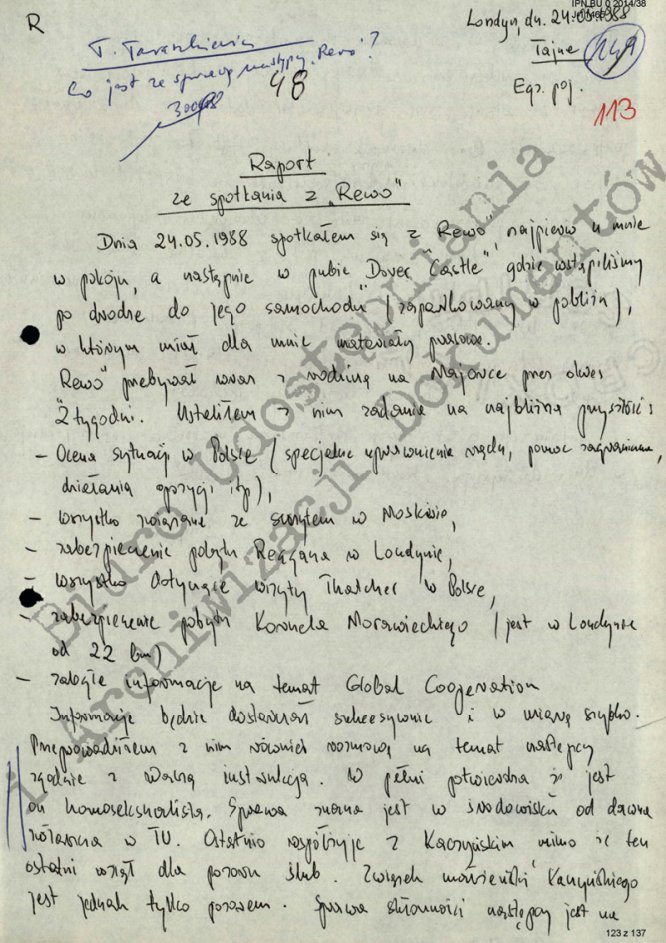 IPN BU 0 2014/38
R
Londyn, dn. 24.05.1988
Tajne
Egz. poj.
149
113
T. Taraszkiewicz
Co jest ze sprawą następcy „Rewo”?
48
Raport
ze spotkania z „Rewo”
Dnia 24.05.1988 spotkałem się z „Rewo”, najpierw u mnie
w pokoju, a następnie w pubie „Dover Castle”, gdzie wstąpiliśmy
po drodze do jego samochodu (zaparkowany w pobliżu),
w którym miał dla mnie materiały prasowe.
„Rewo” przebywał wraz z rodziną na Majorce przez okres
2 tygodni. Ustaliłem z nim zadania na najbliższą przyszłość:
– Ocena sytuacji w Polsce (specjalne uprawnienia rządu, pomoc zagraniczna,
działania opozycji itp),
– wszystko związane ze szczytem w Moskwie,
– zabezpieczenie pobytu Reagana w Londynie,
– wszystko dotyczące wizyty Thatcher w Polsce,
– zabezpieczenie pobytu Kornela Morawieckiego (jest w Londynie
od 22 bm)
– zaległe informacje na temat Global Cooperation
Informacje będzie dostarczał sukcesywnie i w miarę szybko.
Przeprowadziłem z nim również rozmowę na temat następcy
zgodnie z Waszą instrukcją. W pełni potwierdza że jest
on homoseksualistą. Sprawa znana jest w środowisku od dawna
zwłaszcza w TV. Ostatnio współżyje z Kaczyńskim mimo że ten
ostatni wziął dla pozoru ślub. Związek małżeński Kaczyńskiego
jest jednak tylko pozorem. Sprawa skłonności następcy jest na
Biuro Udostępniania
i Archiwizacji Dokumentów
123 z 137